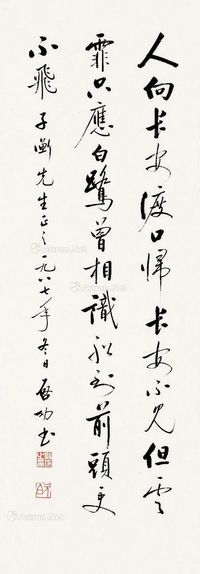 人向长安渡口归长安不见但云
霏只应白鹭曾相识船到前头更
不飞 子衡先生正之 一九八七年冬日 启功书